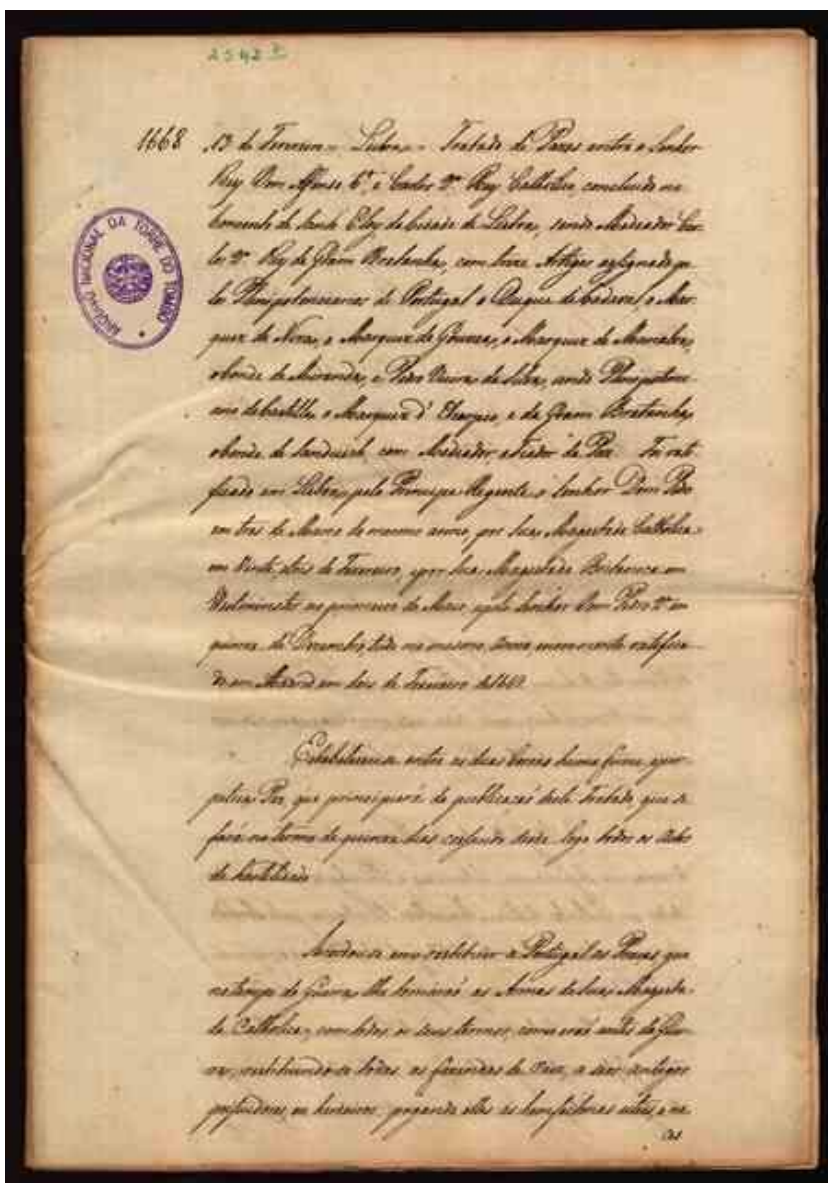 2542
1668 13 de Fevereiro = Lisboa = Tratado de Pazes entre o Senhor
Rey Dom Affonso 6º, e Carlos 2º Rey Catholico, concluido no
Convento de Santo Eloy da Cidade de Lisboa, sendo Mediador Car-
los 2º Rey da Gram Bretanha, com treze Artigos assignado pe-
los Plenipotenciarios de Portugal o Duque de Cadaval, o Mar-
quez de Niza, o Marquez de Gouvea, o Marquez de Marialva,
o Conde de Miranda, e Pedro Vieira da Silva, sendo Plenipotenci-
ario de Castella o Marquez d' e da Gram Bretanha,
o Conde de Sanduich, com Mediador, e Fiador da Paz. Foi rati-
ficado em Lisboa, pelo Principe Regente, o Senhor Dom Pedro
em tres de Março do mesmo anno, por Sua Magestade Catholica
em Vinte, tres de Fevereiro, e por Sua Magestade Britanica em
Westminster no primeiro de Maio, e pelo Senhor Dom Pedro 2º em
de Dezembro, tudo no mesmo Anno, e novamente ratifica-
do em Madrid em dois de Fevereiro de
Estabeleceu-se entre as duas Coroas huma firme, e per-
petua Paz, que principiará da publicacaõ deste Tratado, que se
fará no termo de quinze dias cessando desde logo todos os Actos
de hostilidade
restituir a Portugal as Praças que
no tempo da Guerra lhe tomáraõ as Armas de Sua Magesta-
de Catholica, com todos os seus termos, como eraõ antes da Guer-
ra, restituindo-se todas as fazendas de raiz, a seus antigos
possuidores, ou herdeiros, pagando elles as bemfeitorias uteis, e ne
ARQUIVO NACIONAL DA TORRE DO TOMBO